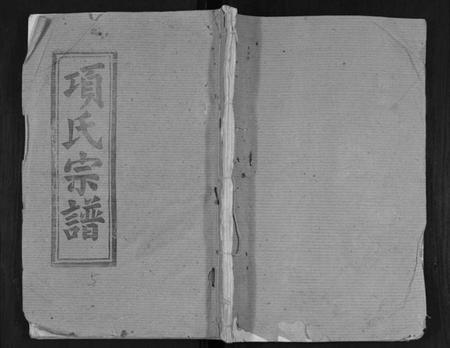 項氏宗譜